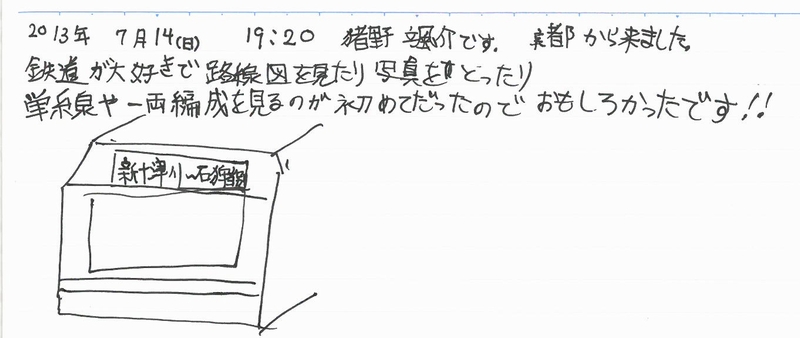 2013年 7月14(日) 19:20 猪野 颯介です。 京都から来ました。
鉄道が大好きで路線図を見たり写真をとったり
単線や一両編成を見るのが初めてだったのでおもしろかったです!!
新十津川〜石狩